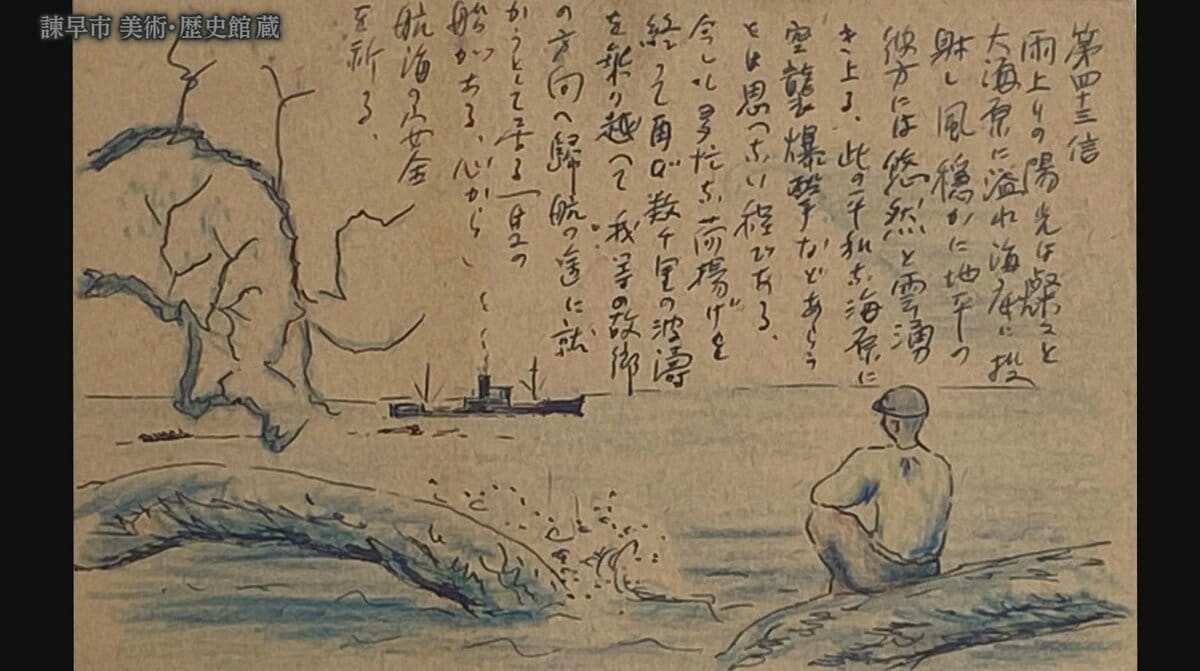 諫早市 美術・歴史館 蔵
第四十三信
雨上りの陽光は燦々と
大海原に溢れ海底に投
射し風穏かに地平の
彼方には悠然と雲湧
き上る、此の平和な海原に
空襲爆撃などあらう
とは思へない程である、
今しも多忙な荷揚げを
終って再び数千里の波濤
を乗り越へて我等の故郷
の方向へ歸航の途に就
かうとして居る一隻の
船がある、心から、
航海の安全
を祈る、